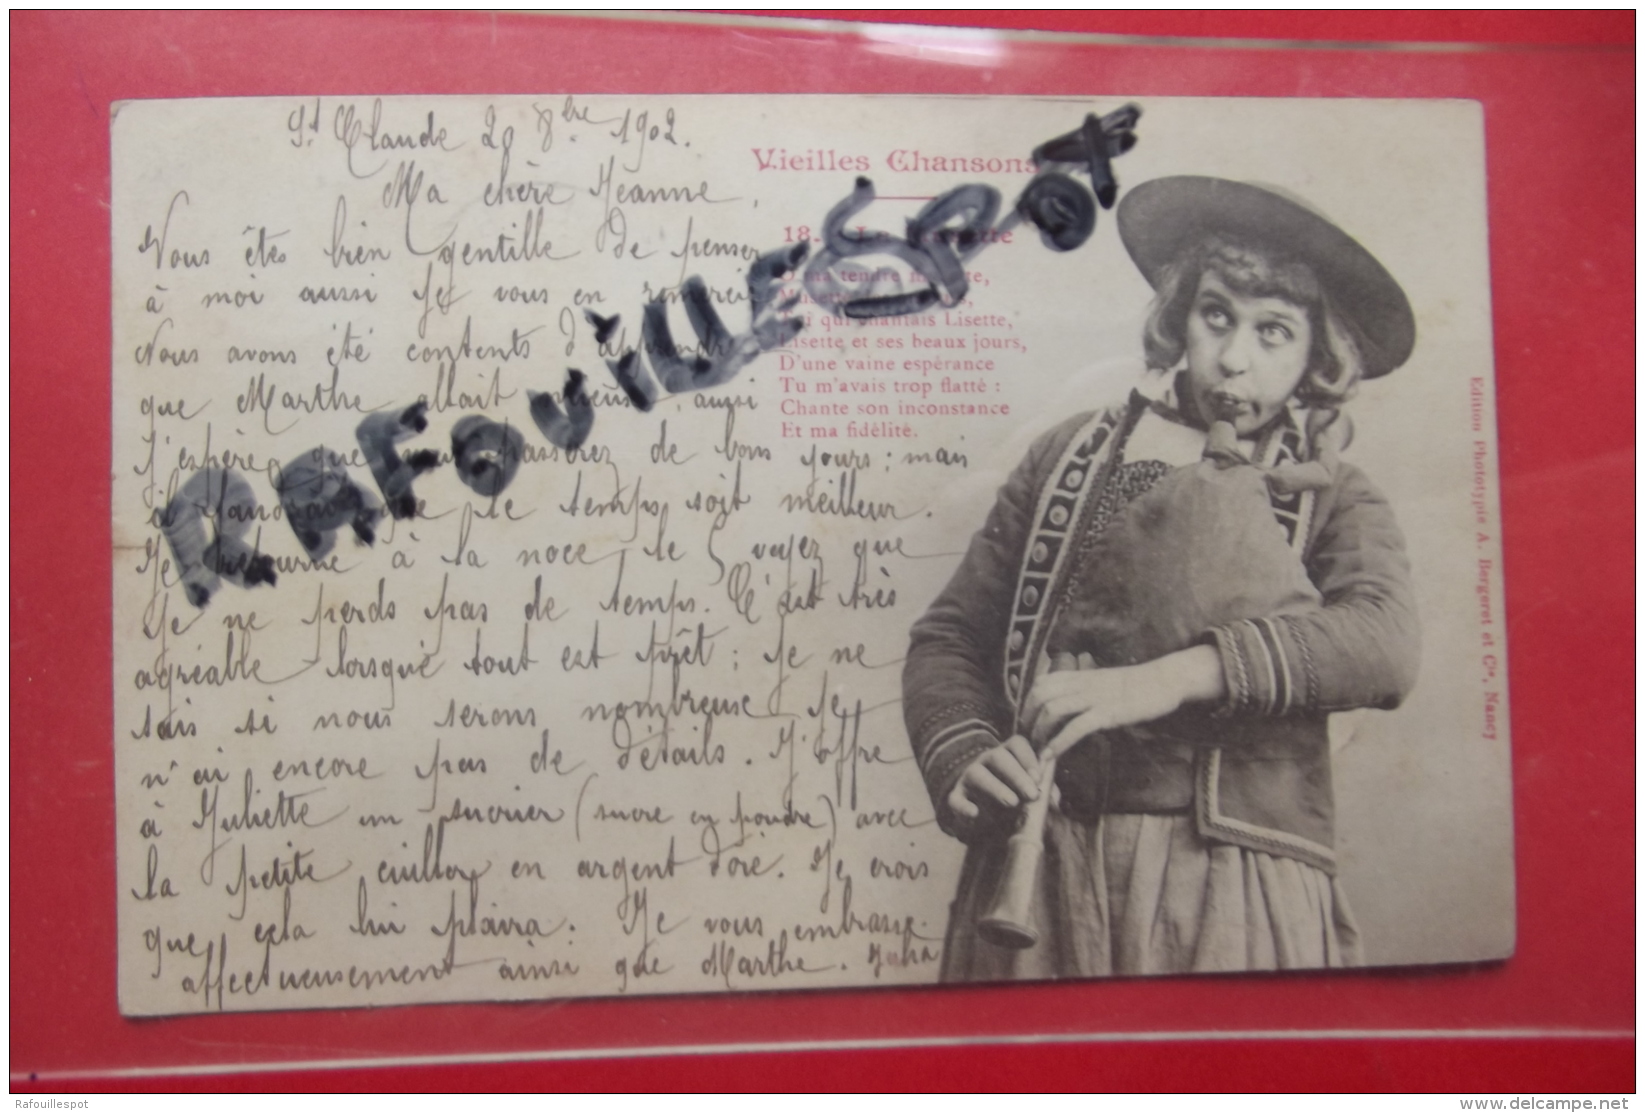 St Claude 20 8bre 1902.
Ma chère Jeanne,
Vous êtes bien gentille de penser
à moi aussi je vous en remercie
Nous avons été contents d'apprendre
que Marthe allait mieux, aussi
J'espère que vous passerez de bons jours; mais
il faudrait que le temps soit meilleur.
Je retourne à la noce le 5 voyez que
je ne perds pas de temps. C'est très
agréable lorsque tout est prêt; je ne
sais si nous serons nombreuse je
n'ai encore pas de détails. J'offre
à Juliette un sucrier (sucre en poudre) avec
la petite cuiller en argent doré. Je crois
que cela lui plaira. Je vous embrasse
affectueusement ainsi que Marthe. Julia
Vieilles Chansons
18. La
O ma tendre
qui chantais Lisette,
Lisette et ses beaux jours,
D'une vaine espérance
Tu m'avais trop flatté :
Chante son inconstance
Et ma fidélité.
Edition Phototypie A. Bergeret et Cie, Nancy
RAFOUILLESPOT
Rafouillespot
www.delcampe.net